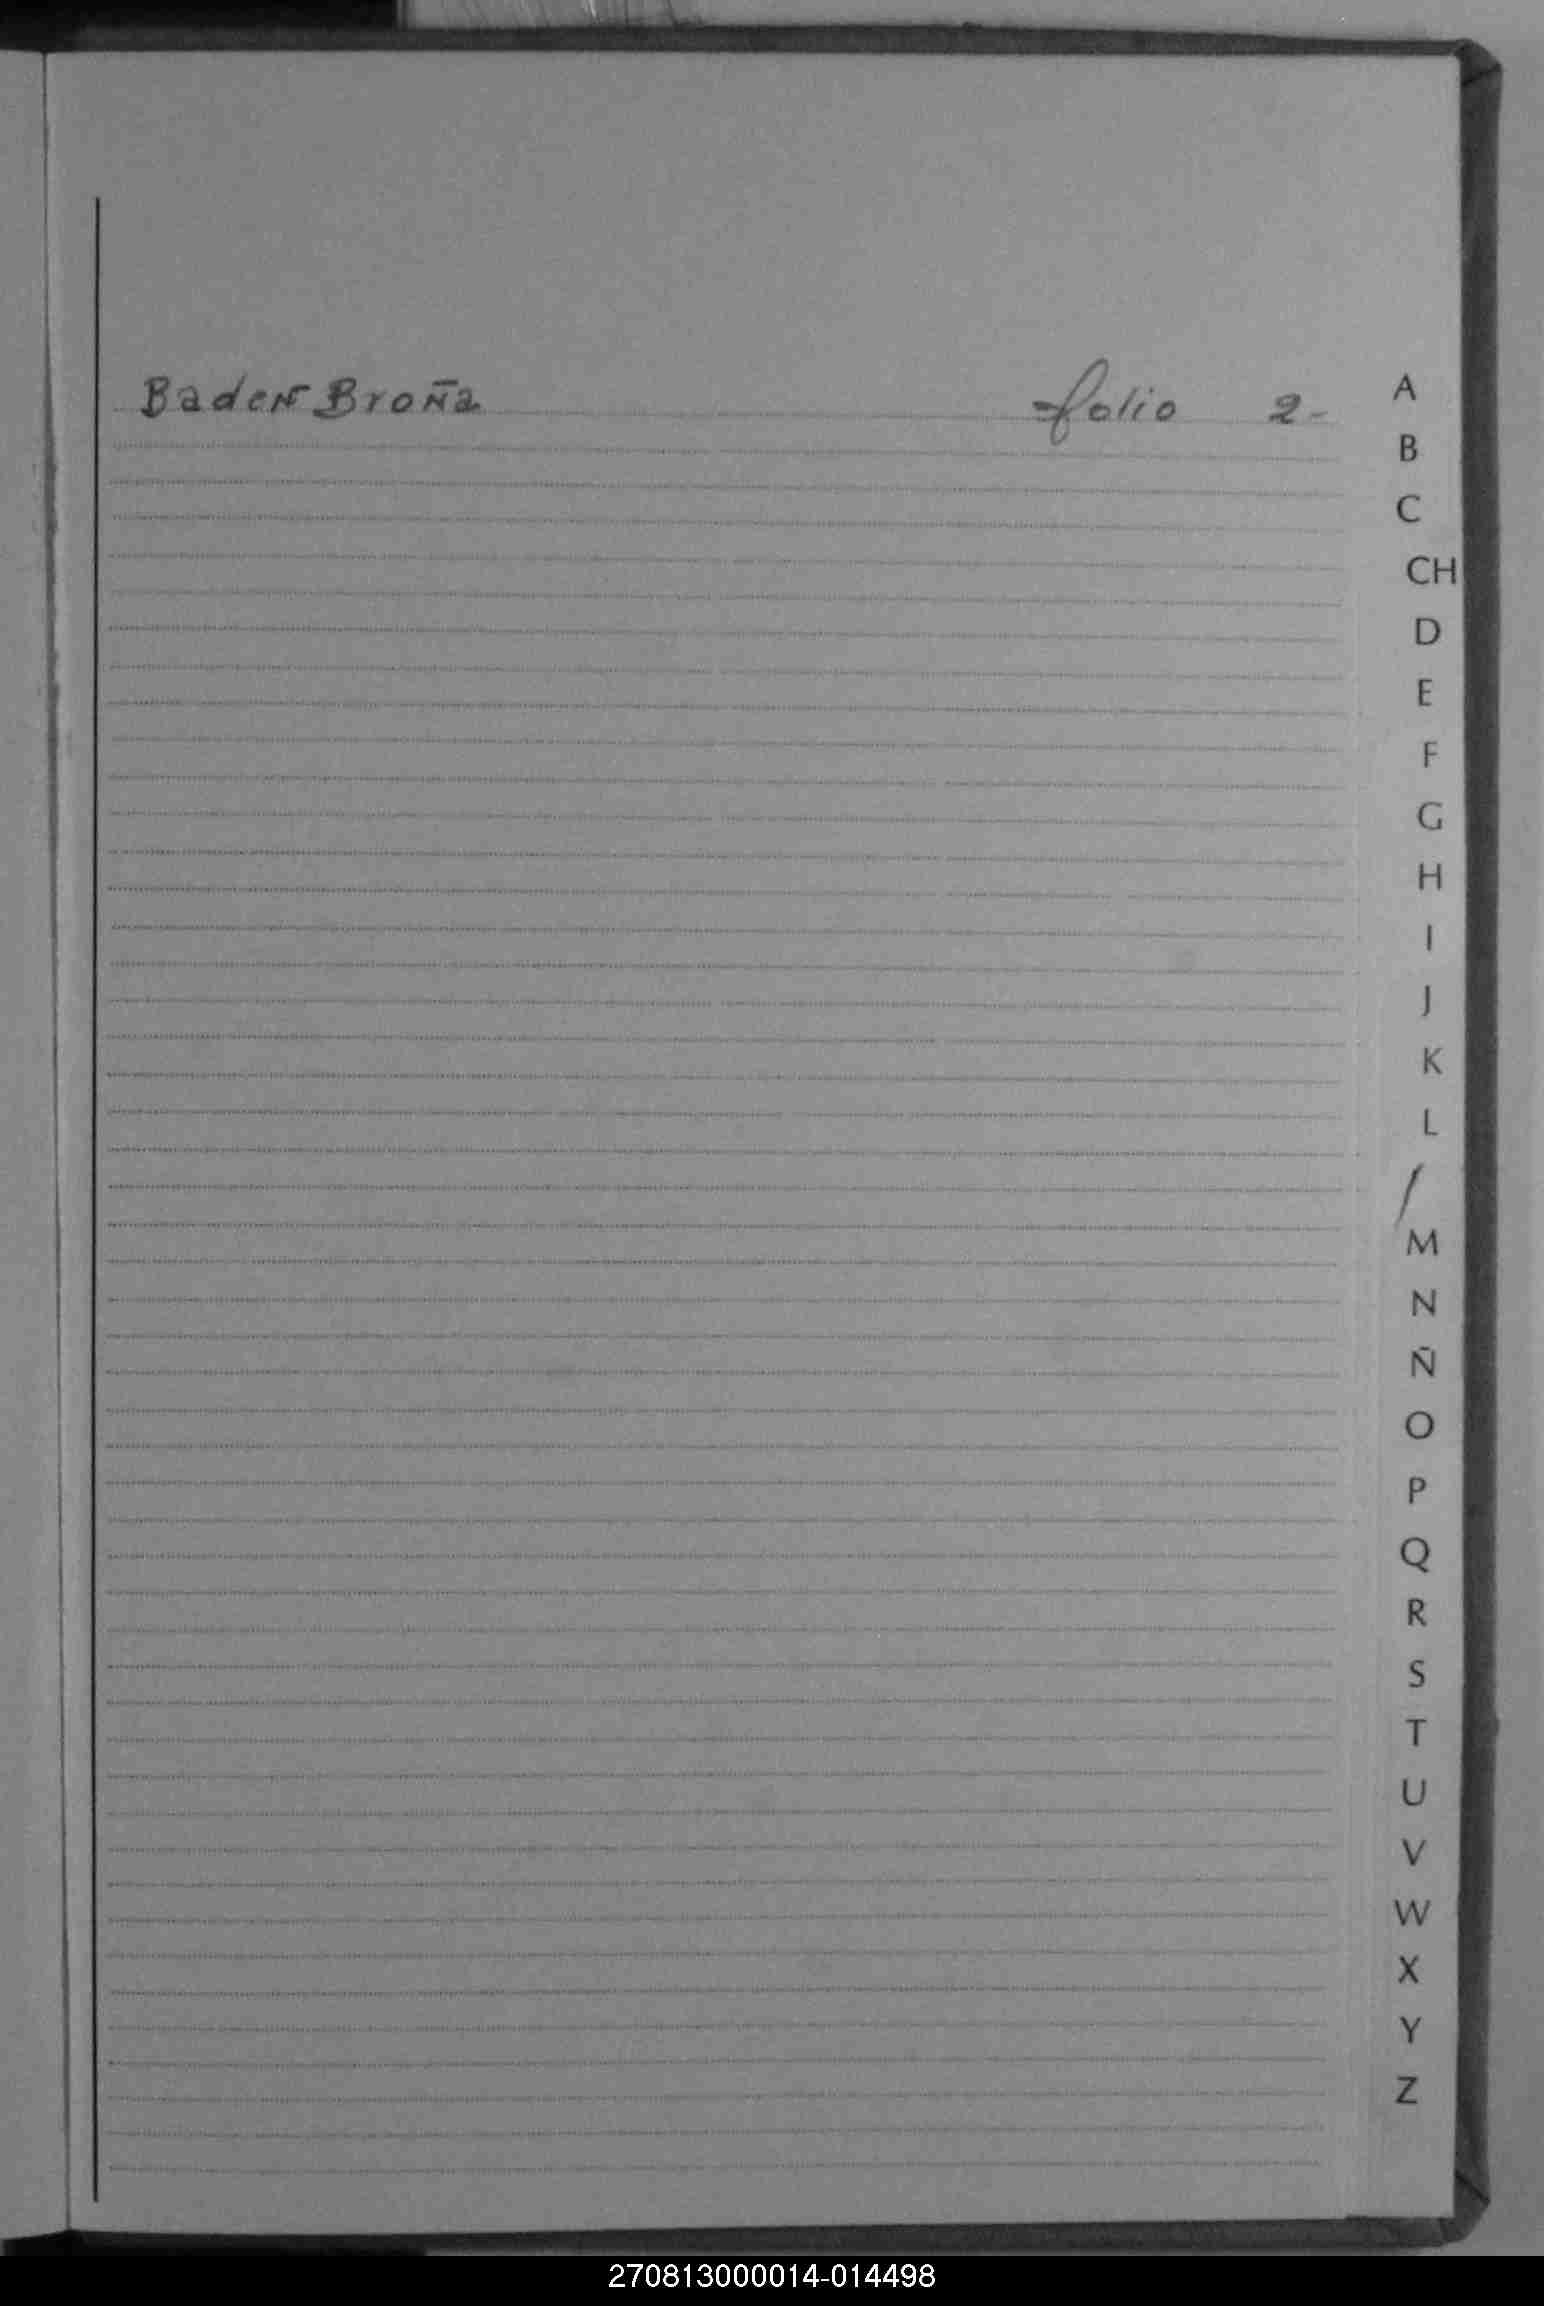 Baden Broña folio 2-
A
B
C
CH
D
E
F
G
H
I
J
K
L
M
N
Ñ
O
P
Q
R
S
T
U
V
W
X
Y
Z
270813000014-014498